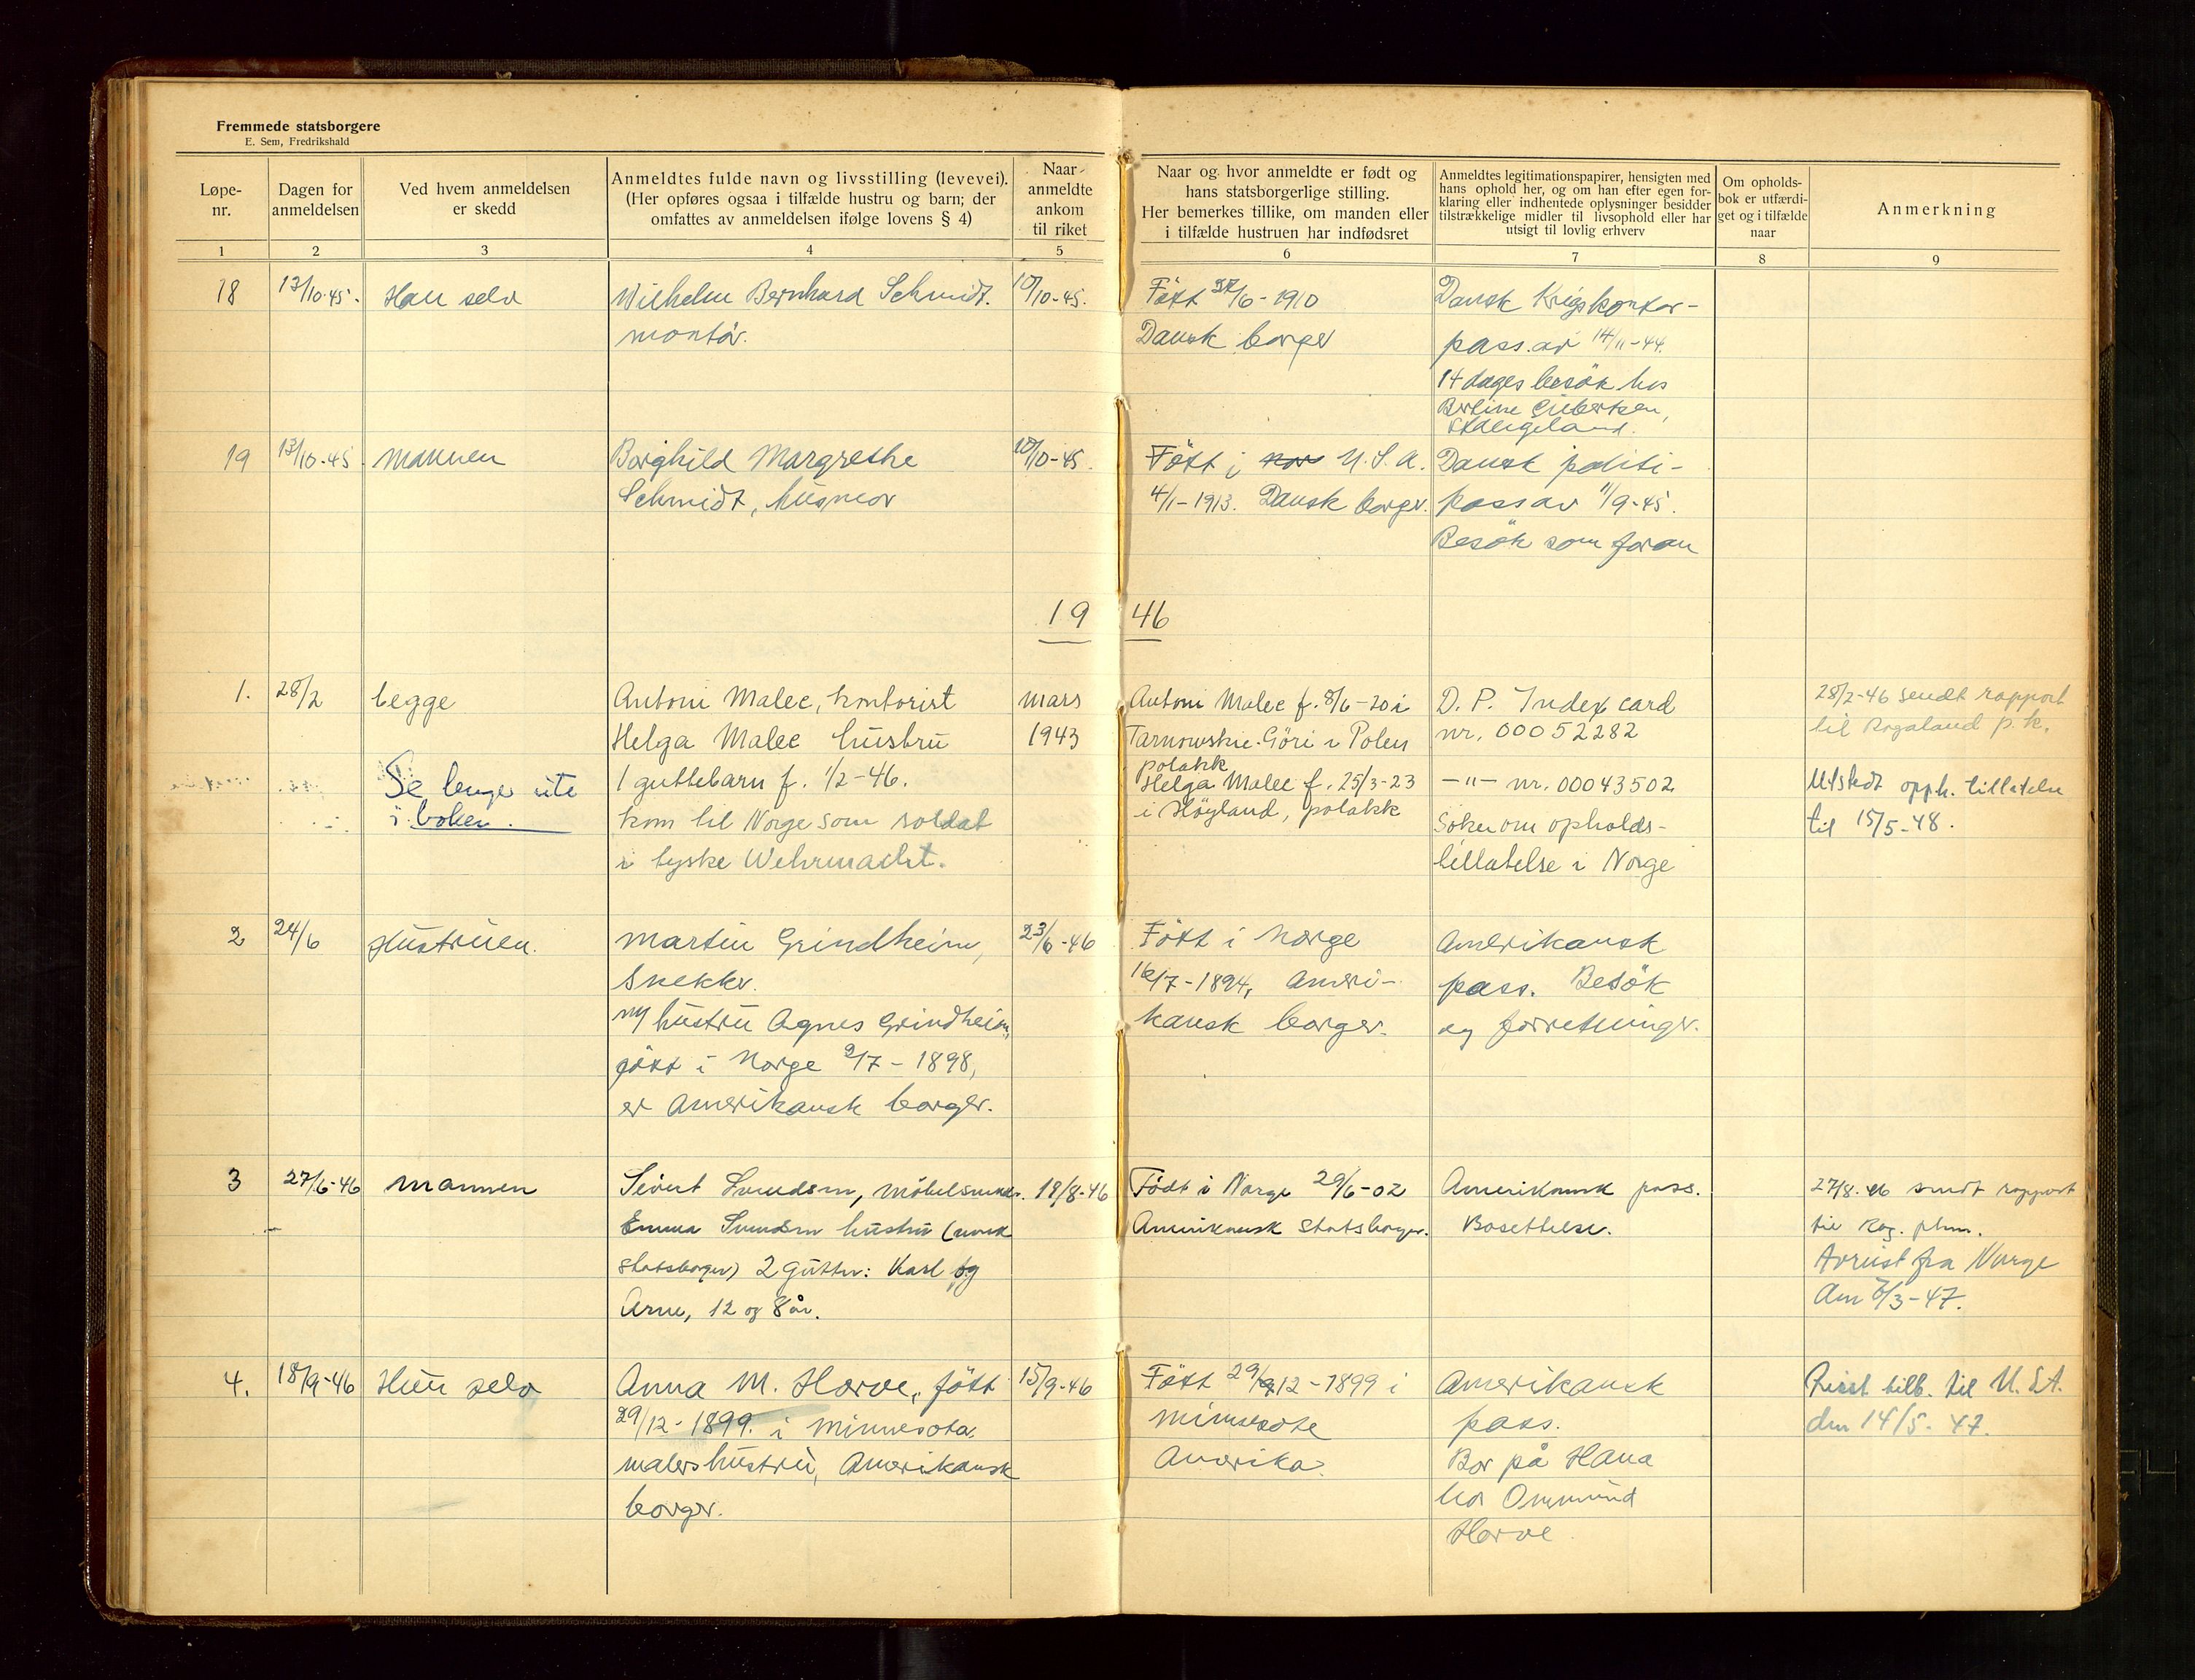 Fremmede statsborgere
E. Sem, Fredrikshald
Løpe-
nr.
Dagen for
anmeldelsen
Ved hvem anmeldelsen
er skedd
Anmeldtes fulde navn og livsstilling (levevei).
(Her opføres ogsaa i tilfælde hustru og barn; der
omfattes av anmeldelsen ifølge lovens § 4)
Naar
anmeldte
ankom
til riket
Naar og hvor anmeldte er født og
hans statsborgerlige stilling.
Her bemerkes tillike, om manden eller
i tilfælde hustruen har indfødsret
Anmeldtes legitimationspapirer, hensigten med
hans ophold her, og om han efter egen for-
klaring eller indhentede oplysninger besidder
tilstrækkelige midler til livsophold eller har
utsigt til lovlig erhverv
Om opholds-
bok er utfærdi-
get og i tilfælde
naar
Anmerkning
1 2 3 4 5 6 7 8 9
18
13/10-45.
Han selv
Wilhelm Bernhard Schmidt.
montör.
10/10-45.
Född /6-1910
Dansk borger
Dansk
pass.av 14/11-44.
14 dages besök hos
Bertine
19
13/10-45
Mannen
Borghild Margrethe
Schmidt, husmor
10/10-45.
Född i nor U.S.A.
4/1-1913. Dansk borger.
Dansk politi-
pass av 11/9-45.
Besök som foran
19 46
1.
28/2
begge
Se lenger ute
i boken.
Antoni Malec, kontorist
Helga Malec hustru
1 guttebarn f. 1/2-46.
kom til Norge som soldat
i tyske Wehrmacht.
mars
1943
Antoni Malec f. 8/6-20 i
Tarnowskie-Göri i Polen
polakk
Helga Malec f. 25/3-23
i Höyland, polakk
D. P. Index card
nr. 00052282
-"- nr. 00043502
Söker om opholds-
tillatelse i Norge
28/2-46 sendt rapport
til Rogaland p.k.
Utstedt opph. tillatelse
til 15/5-48.
2
24/6
Hustruen.
Martin Grindheim,
Snekker.
ny hustru Agnes Grindheim,
född i Norge 9/7-1898,
er Amerikansk borger.
23/6-46
Född i Norge
16/7-1894, Ameri-
kansk borger.
Amerikansk
pass. Besök
og forretninger.
3
27/6-46
Mannen
Sivert Svendsen, möbelsnekk.
Emma Svendsen hustru (norsk
statsborger) 2 gutter: Karl og
Arne, 12 og 8 år.
18/8-46
Född i Norge 29/6-02
Amerikansk statsborger.
Amerikansk pass.
Bosettelse.
27/8.46 sendt rapport
til Rog. pkm.
Avreist fra Norge
Am /3-47.
4.
18/9-46
Hun selv
Anna M. Horve, född
29/12-1899. i Minnesota.
malershustru, Amerikansk
borger.
15/9-46
Född 29/ 12-1899 i
Minnesota
Amerika.
Amerikansk
pass.
Bor på Hana
hos Ommund
Horve
Reist tilb. til U.S.A.
den 14/5-47.